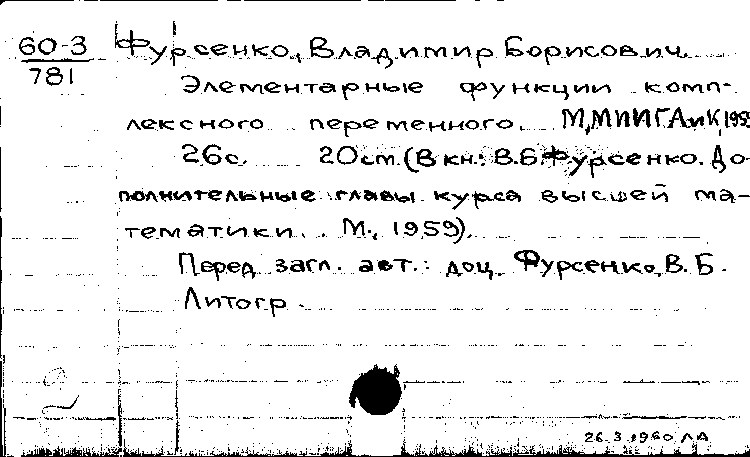 60-3 Фурсенко, Владимир Борисович.
781 Элементарные функции комп-
лексного переменного. М, МИИГАиК, 1959
26с. 20см. (В кн.: В.Б. Фурсенко. До-
полнительные главы курса высшей ма-
тематики. М., 1959).
Перед загл. авт.: доц. Фурсенко, В. Б.
Литогр.
26.3.1960 ЛА